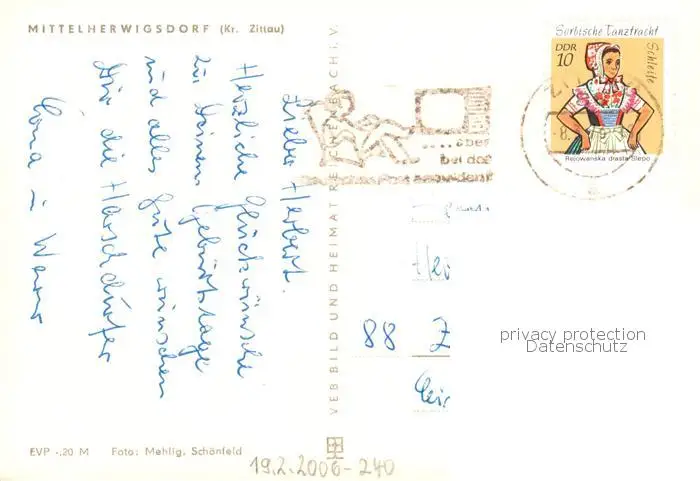 MITTELHERWIGSDORF (Kr. Zittau)
Lieber Herbert.
Herzliche Glückwünsche
zu Deinem Geburtstage
und alles Gute wünschen
Dir die
Cora u. Werner
VEB BILD UND HEIMAT REICHENBACH i. V.
.....aber
bei der
Sorbische Tanztracht
DDR
10
Schleife
Rejowanska drasta Slepo
88 Z
privacy protection
Datenschutz
EVP -.20 M Foto: Mehlig, Schönfeld
19.2.2006-240